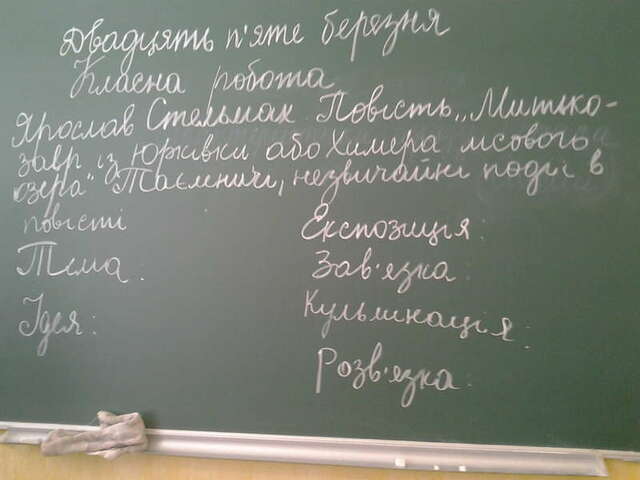 Двадцять п'яте березня
Класна робота
Ярослав Стельмах. Повість „Митько-
завр із Юрківки або Химера лісового
озера" Таємничі, незвичайні події в
повісті
Тема:
Ідея:
Експозиція:
Зав'язка:
Кульмінація:
Розв'язка: